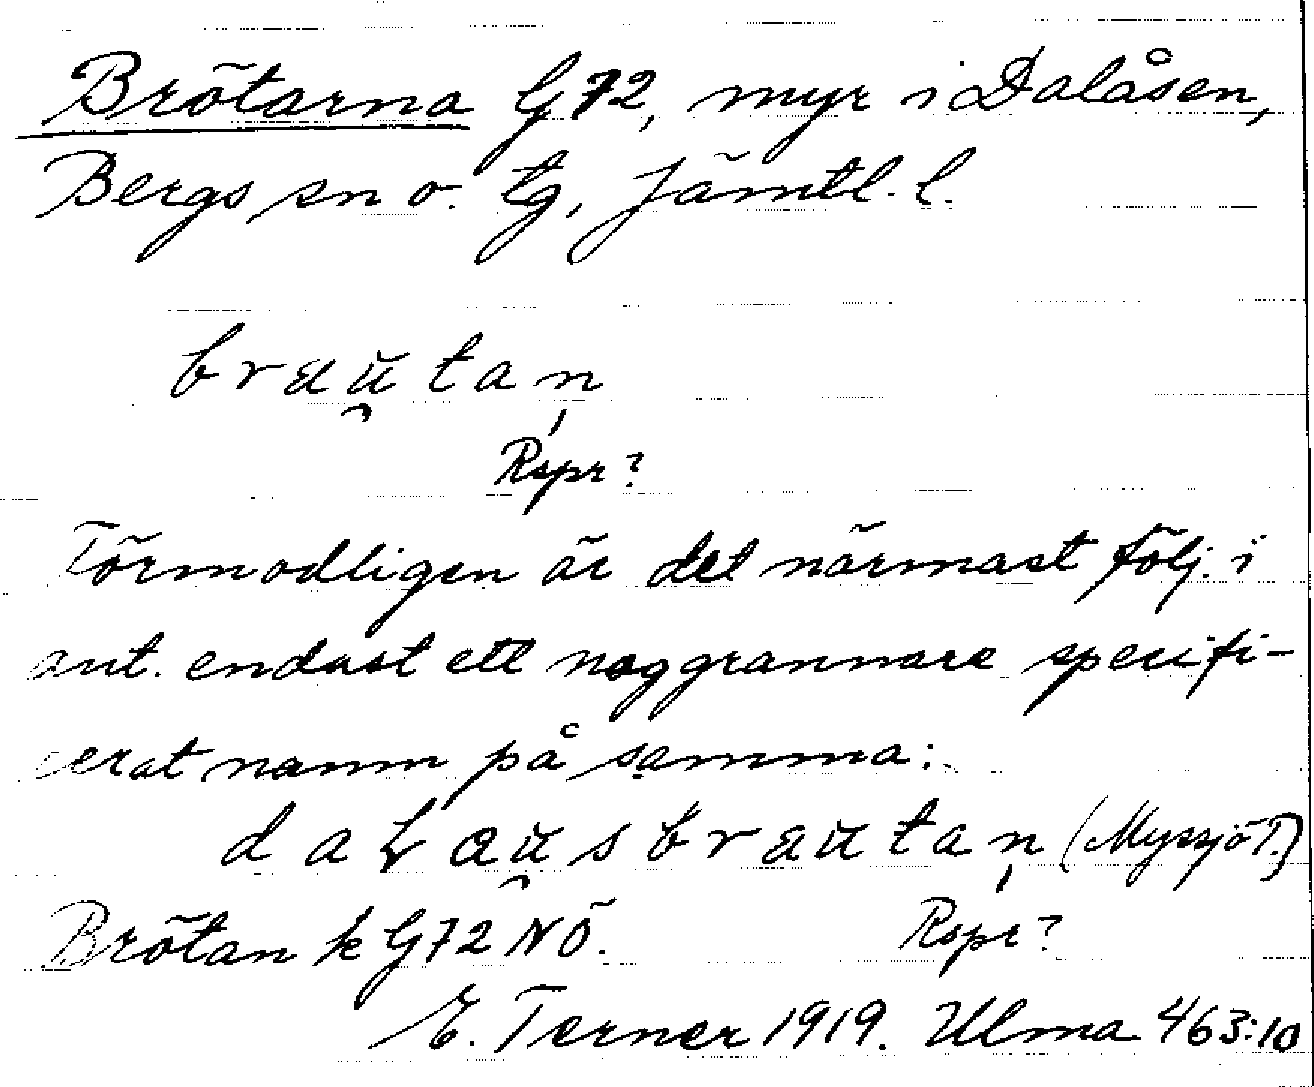 Brötarna G72, myr i Dalåsen,
Bergs sn o. tg, Jämtl. l.
braŭ̯tan̩
Rspr?
Förmodligen är det närmast följ. i
ant. endast ett noggrannare specifi-
cerat namn på samma:
daƚaŭ̯sbraŭtan̩ (Myssjö T.)
Rspr?
Brötan k G72 NÖ.
E. Terner 1919. Ulma 463:10